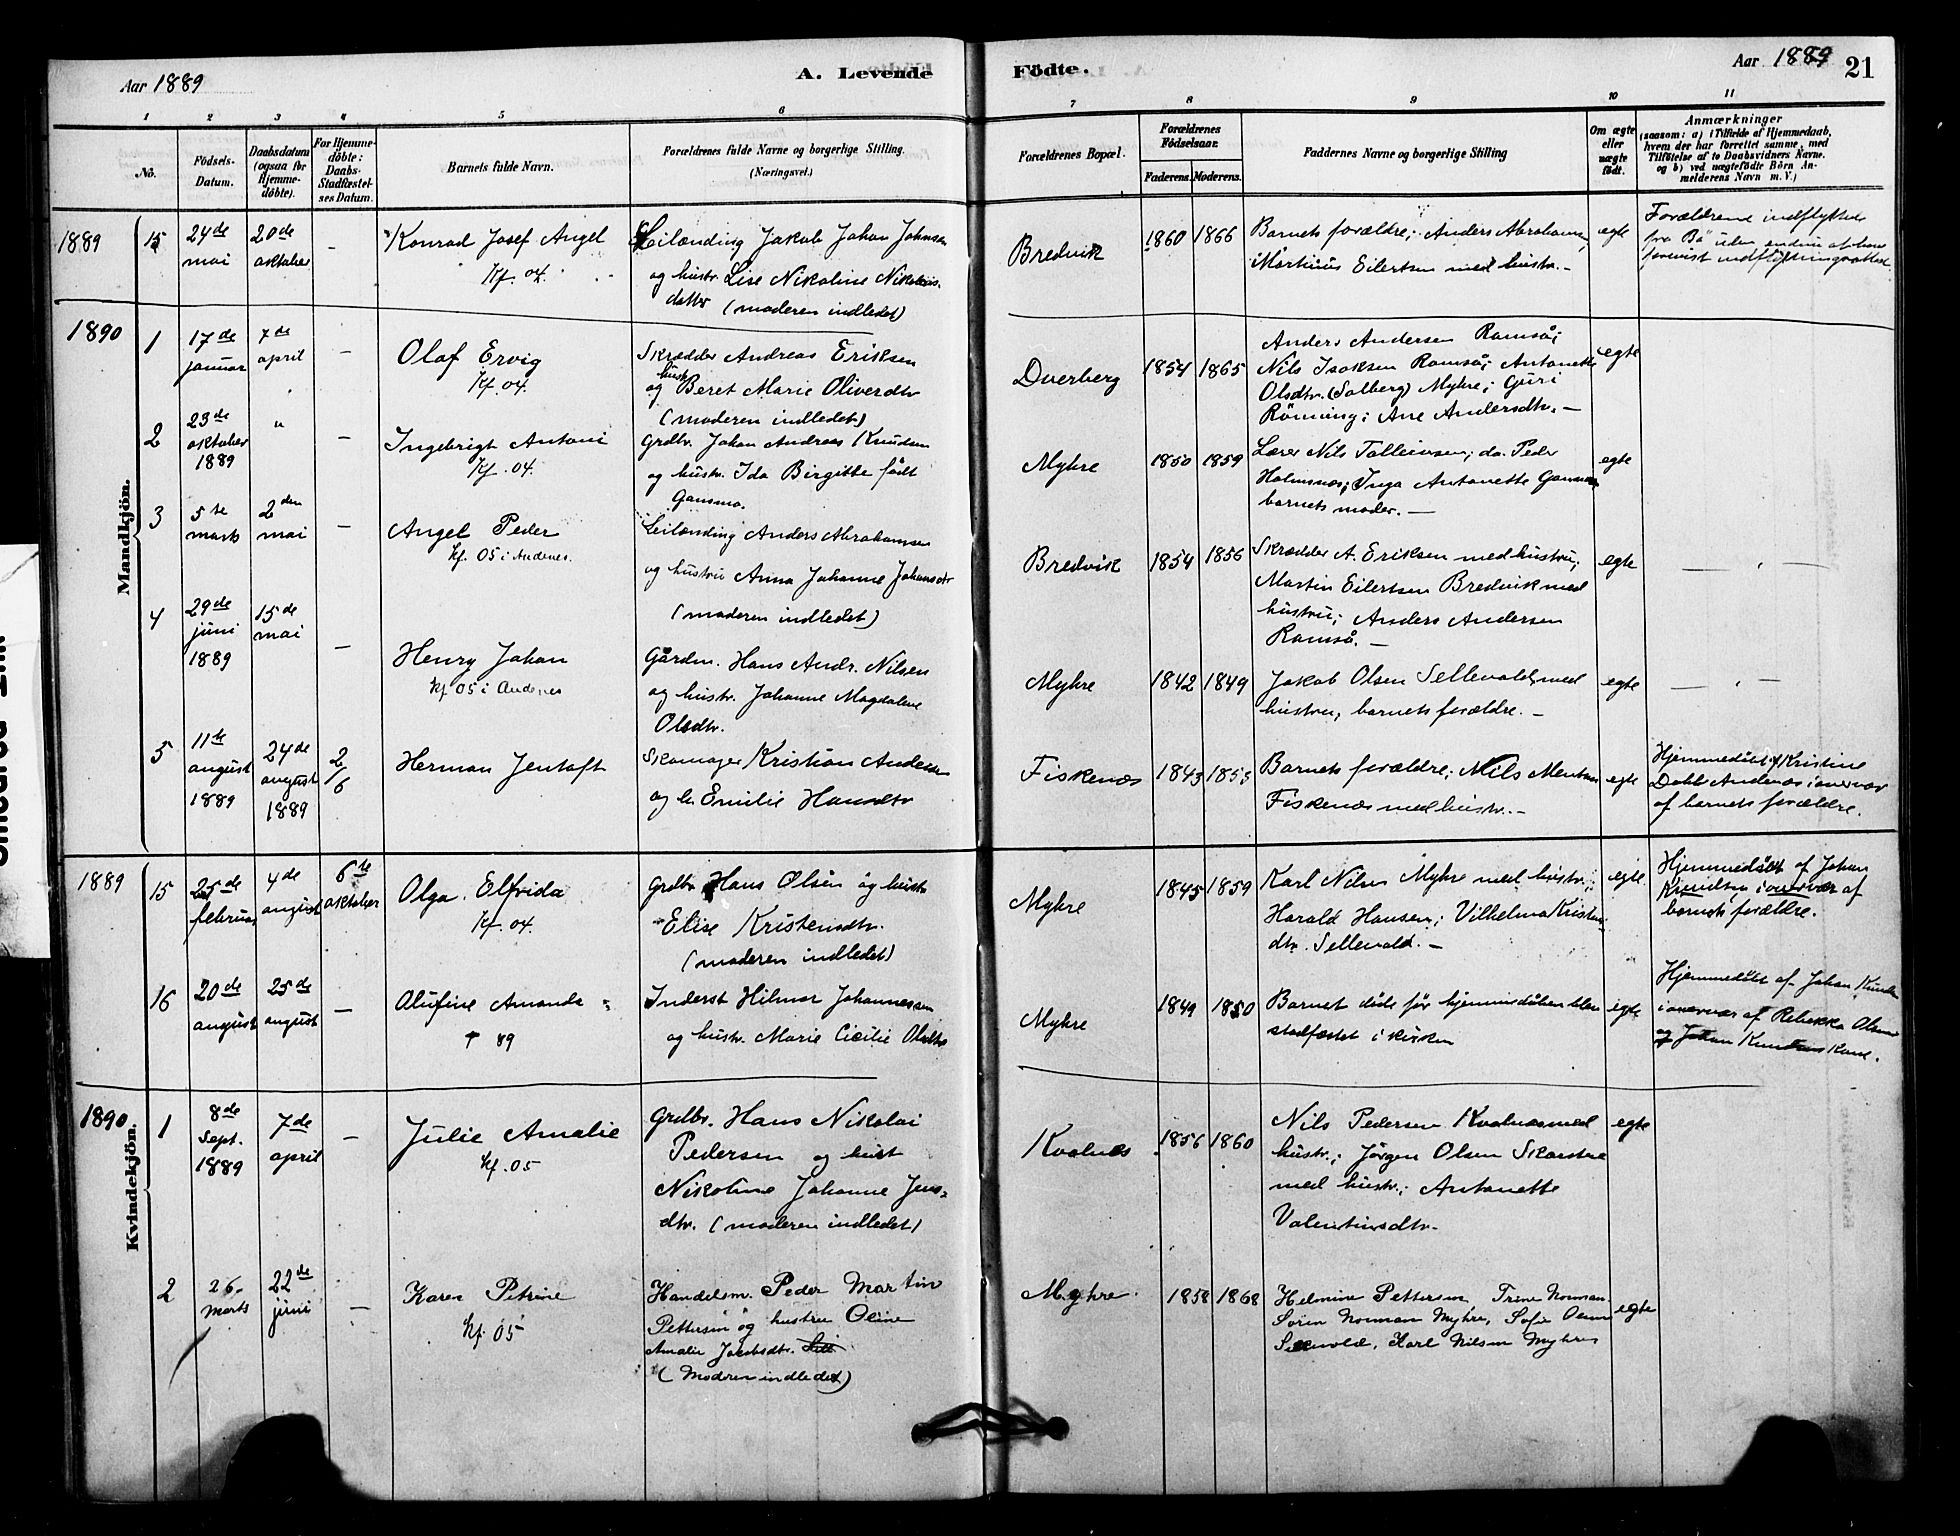 Aar 1889
A. Levende
Födte.
Aar 1889
21
1 2 3 4 5 6 7 8 9 10 11
No.
Födsels-
Datum.
Daabsdatum
(ogsaa for
Hjemme-
döbte).
For Hjemme-
döbte:
Daabs-
Stadfæstel-
ses Datum.
Barnets fulde Navn.
Forældrenes fulde Navne og borgerlige Stilling.
(Næringsvei.)
Forældrenes Bopæl.
Forældrenes
Födselsaar.
Faderens. Moderens.
Faddernes Navne og borgerlige Stilling
Om ægte
eller
uægte
födt.
Anmærkninger
(saasom: a) i Tilfælde af Hjemmedaab,
hvem der har forrettet samme, med
Tilföielse af to Daabsvidners Navne.
og b) ved uægtefödte Börn An-
melderens Navn m. V.)
Mandkjön.
1889
15
24de
mai
20de
oktober
–
Konrad Josef Angel
Kf. 04.
Leilænding Jakob Johan Johnsen
og hustr. Lise Nikoline Nikolais-
datter (moderen indledet)
Bredvik
1860 1866
Barnets forældre; Anders Abrahamsen,
Martinus Eilertsen med hustr. –
egte
Forældrene indflyttet
fra Bö uden endnu at have
forevist indflytningsattest
1890
1
17de
januar
7de
april
–
Olaf Ervig
Kf. 04.
Skrædder Andreas Eriksen
og hustr. Beret Marie Oliverdtr
(moderen indledet)
Dverberg
1854 1865
Anders Andersen Ramså;
Nils Isaksen Ramså; Antonette
Olsdtr. (Solberg) Myhre; Guri
Rönning; Ane Andersdtr. –
egte
2
23de
oktober
1889
"
–
Ingebrigt Antoni
Kf. 04.
Grdbr. Johan Andreas Knudsen
og hustr. Ida Birgitte født
Gansmo.
Myhre
1850 1859
Lærer Nils Tolleivsen; do. Peder
Holmsnæs; Inga Antonette
barnets moder. –
egte
3
5te
marts
2den
mai
–
Angel Peder
kf. 05 i Andenes.
Leilænding Anders Abrahamsen
og hustru Anna Johanne Johansdtr
(moderen indledet)
Bredvik
1854 1856
Skrædder A. Eriksen med hustru;
Martin Eilertsen Bredvik med
hustru; Anders Andersen
Ramså. –
egte
— " —
4
29de
juni
1889
15de
mai
–
Henry Johan
kf 05 i Andenes
Gårdm. Hans Andr. Nilsen
og hustr. Johanne Magdalene
Olsdtr.
Myhre
1842 1849
Jakob Olsen Sellevold med
hustru, barnets forældre. –
egte
— " —
5
11te
august
1889
24de
august
1889
2/6
Herman Jentoft
Skomager Kristian Andersen
og h. Emilie Hansdtr
Fiskenæs
1843 1855
Barnets forældre; Nils
Fiskenæs med hustr. –
egte
Hjemmedöbt af Kristine
Dahl Andenæs i overvær
af barnets forældre.
Kvindekjön.
1889
15
25de
februar
4de
august
6te
oktober
Olga Elfrida
Kf. 04.
Grdbr Hans Olsen og hustr
Elise Kristensdtr.
(moderen indledet)
Myhre
1845 1859
Karl Nilsen Myhre med hustr.;
Harald Hansen; Vilhelma Kristens-
dtr. Sellevold. –
egte
Hjemmedöbt af Johan
Knudsen i overvær af
barnets forældre.
16
20de
august
25de
august
–
Olufine Amanda
† 89
Inderst Hilmar Johannessen
og hustr. Marie Cicilie Olsdtr
Myhre
1849 1850
Barnet døde før hjemmedåben blev
stadfæstet i kirken
egte
Hjemmedöbt af Johan Knudsen
i overvær af Rebekka Olsen
og Johan Knudsens Kone.
1890
1
8de
Sept.
1889
7de
april
–
Julie Amalie
kf. 05
Grdbr. Hans Nikolai
Pedersen og hustr
Nikoline Johanne Jens-
dtr. (moderen indledet)
Kvalnæs
1856 1860
Nils Pedersen Kvalnæs med
hustr.; Jørgen Olsen Skarstein
med hustr.; Antonette
Valentinsdtr.
egte
2
26.
Marts
22de
juni
–
Karen Petrine
kf. 05
Handelsm. Peder Martin
Pettersen og hustru Oline
Amalie Jacobsdtr.
(Moderen indledet)
Myhre.
1858 1868
Helmine Pettersen, Trine Norman,
Søren Norman Myhre, Sofie Olsen
Sellevold, Karl Nilsen Myhre
egte